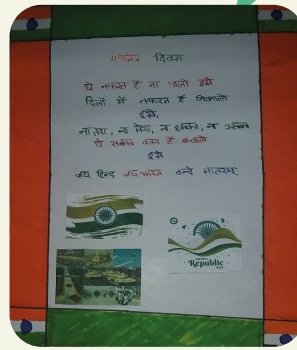 गणतंत्र दिवस
ये नफरत है ना पालो इसे
दिलों में नफरत है निकालो
इसे,
ना तेरा, ना मेरा, ना इसका, ना उसका
ये सबका वतन है बचालो
इसे
जय हिन्द जय भारत वन्दे मातरम्
Republic